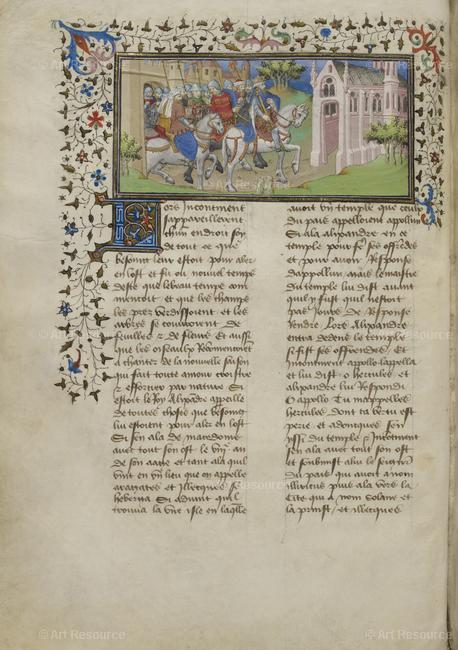 Lors Incontinent
sappareillerent
chun endroit soy
de tout ce que
besoing leur estoit pour aler
en lost et fu ou nouuel temps
deste que le beau temps com
mencoit et que les champs
les prez verdissoient et les
arbres se couuroient de
fueilles et de fleurs Et aussi
que les oiseaulx Recommencent
a chanter de la nouuelle saison
qui fait toute amour croistre
et esforcer par nature Si
estoit le Roy Alixandre appareille
de toutes choses que besoing
lui estoient pour aler en lost
Si sen ala de macedone
auec tout son ost le
de son aage et tant ala quil
vint en vng lieu que on appelle
et illecques se
heberga Si aduint quil
trouua la vne isle en laqlle
auoit vng temple que ceulx
du pais appelloient appollin
Si ala alixandre en ce
temple pour fe ses offredes
et pour auoir Response
dappollin mais le maistre
du temple lui dist auant
quil y fust quil nestoit
pas heure de Response
Rendre Lors Alixandre
entra dedens le temple
si fist ses offrendes Et
incontinent appollo lappella
et lui dist o hercules et
alixandre lui Respondi
O appollo Tu mappelles
hercules dont ta vertu est
perie et adoncques sen
yssi du temple et Incontinent
sen ala auec tout son ost
et
du pais qui auoit a nom
puis ala vers la
Cite qui a nom
la prinst et illecques
© Art Resource
© Art Resource
© Art Resource
© Art Resource